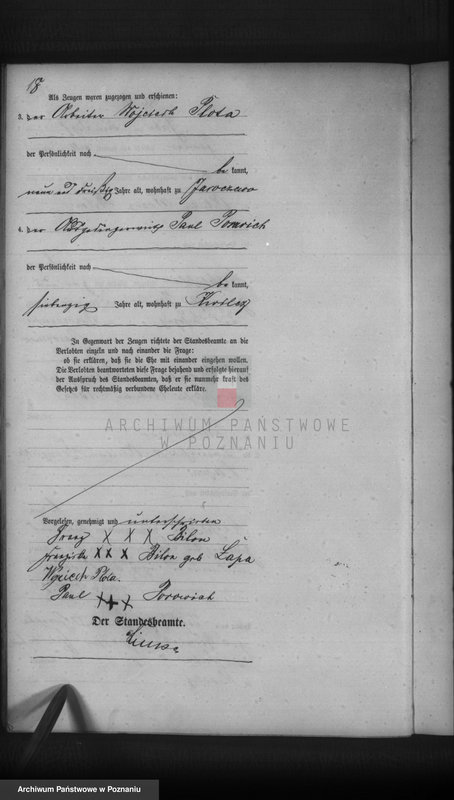 18
Als Zeugen waren zugezogen und erschienen:
3. der Arbeiter Wojciech Plota
der Persönlichkeit nach
be kannt,
neun und dreißig Jahre alt, wohnhaft zu
4. der Paul
der Persönlichkeit nach
be kannt,
siebenzig Jahre alt, wohnhaft zu
In Gegenwart der Zeugen richtete der Standesbeamte an die
Verlobten einzeln und nach einander die Frage:
ob sie erklären, daß sie die Ehe mit einander eingehen wollen.
Die Verlobten beantworteten diese Frage bejahend und erfolgte hierauf
der Ausspruch des Standesbeamten, daß er sie nunmehr kraft des
Gesetzes für rechtmäßig verbundene Eheleute erkläre.
ARCHIWUM PAŃSTWOWE
W POZNANIU
Vorgelesen, genehmigt und unterschrieben
Franz X X X Bilon
XX X Bilon geb Lapa
Plota.
Paul X+X
Der Standesbeamte.
Archiwum Państwowe w Poznaniu